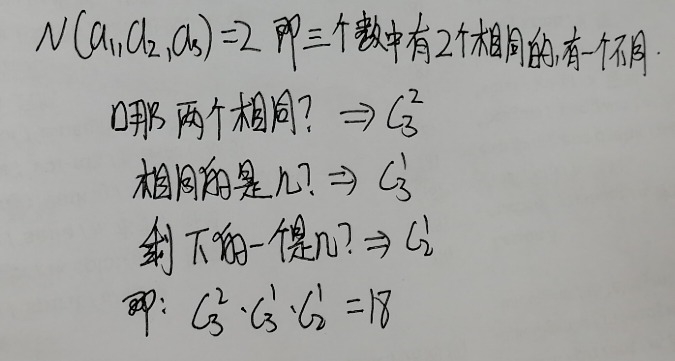 N(a₁,a₂,a₃)=2 即三个数中有2个相同的,有一个不同.
哪两个相同? ⇒ C₃²
相同的是几? ⇒ C₃¹
剩下的一个是几? ⇒ C₂¹
即: C₃²·C₃¹·C₂¹=18